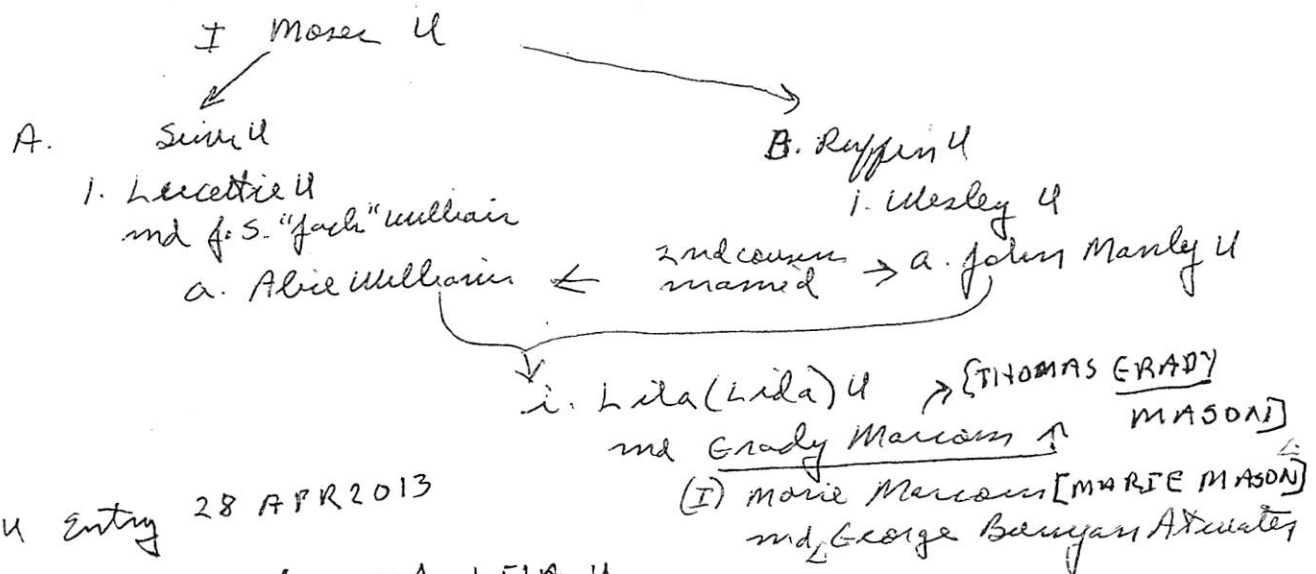 I Moses U
A. Sim U
B. Ruffin U
1. Lucettie U
1. Wesley U
md J. S. "Jack" William
a. Alice Williams ← 2nd cousins married → a. John Manly U
i. Lila (Lida) U → [THOMAS GRADY MASON]
md Grady Marcom ↑
(I) Marie Marcom [MARIE MASON]
md George Bunyan Atwater
U Entry 28 APR 2013